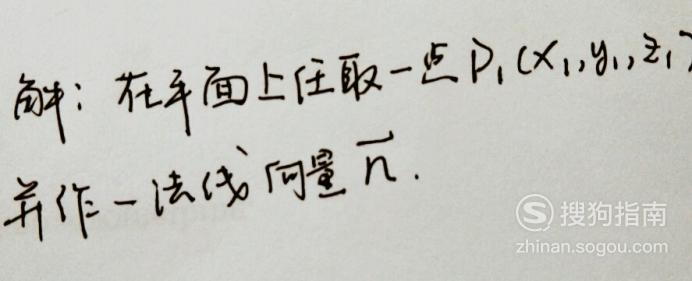 解：在平面上任取一点P₁(x₁,y₁,z₁)
并作一法线向量n⃗.
搜狗指南
zhinan.sogou.com